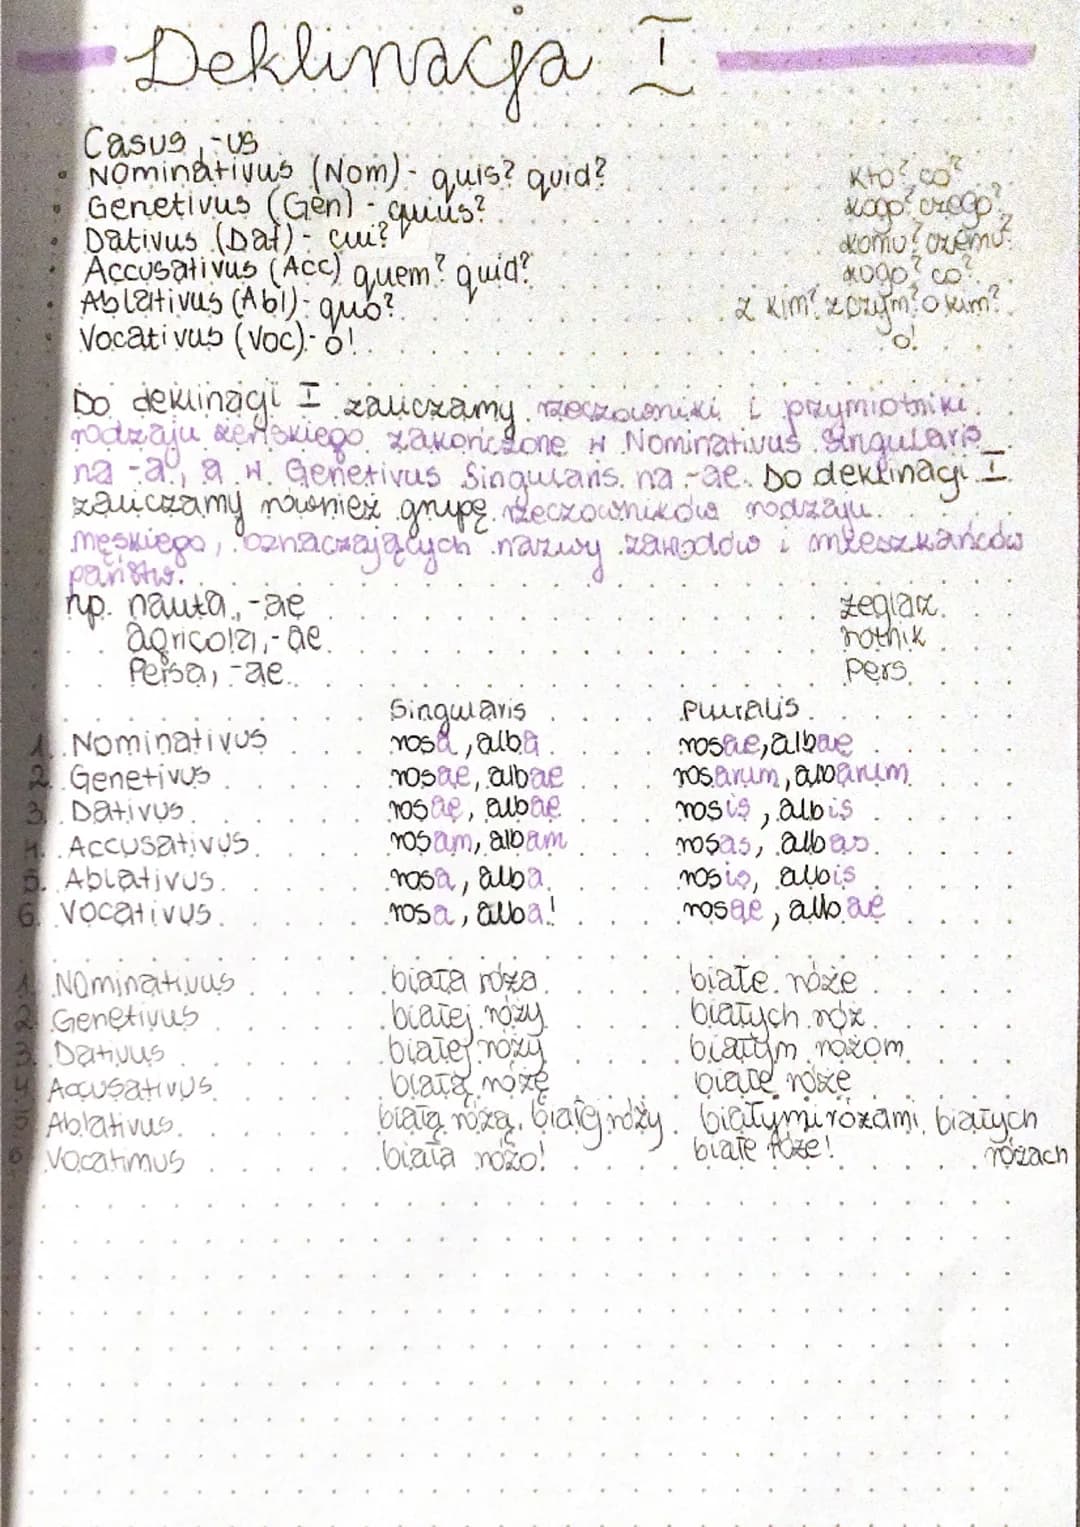 Deklinacja I
Casus, -us
Nominativus (Nom) - quis? quid? kto? co?
Genetivus (Gen) - quius? kogo? czego?
Dativus (Dat) - cui? komu? czemu?
Accusativus (Acc) quem? quid? kogo? co?
Ablativus (Abl) - quo? z kim? z czym? o kim?
Vocativus (Voc) - o! o!
Do deklinacji I zaliczamy rzeczowniki i przymiotniki
rodzaju żeńskiego zakończone w Nominativus Singularis
na -a, a w Genetivus Singularis na -ae. Do deklinacji I
zaliczamy również grupę rzeczowników rodzaju
męskiego, oznaczających nazwy zawodów i mieszkańców
państw.
np. nauta, -ae żeglarz
agricola, -ae rolnik
Persa, -ae Pers
Singularis Pluralis
1. Nominativus rosa, alba rosae, albae
2. Genetivus rosae, albae rosarum, albarum
3. Dativus rosae, albae rosis, albis
4. Accusativus rosam, albam rosas, albas
5. Ablativus rosa, alba rosis, albis
6. Vocativus rosa, alba! rosae, albae
1. Nominativus biała róża białe róże
2. Genetivus białej róży białych róż
3. Dativus białej róży białym różom
4. Accusativus białą różę białe róże
5. Ablativus białą różą, białej róży białymi różami, białych
6. Vocativus biała różo! białe róże! różach